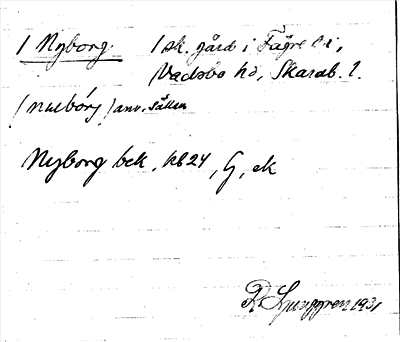 / Nyborg. / sk. gård i Fägre sn,
Vadsbo hd, Skarab. l.
/ anv. sällan
Nyborg bek. RB24, G, ek
R. Ljunggren 1931